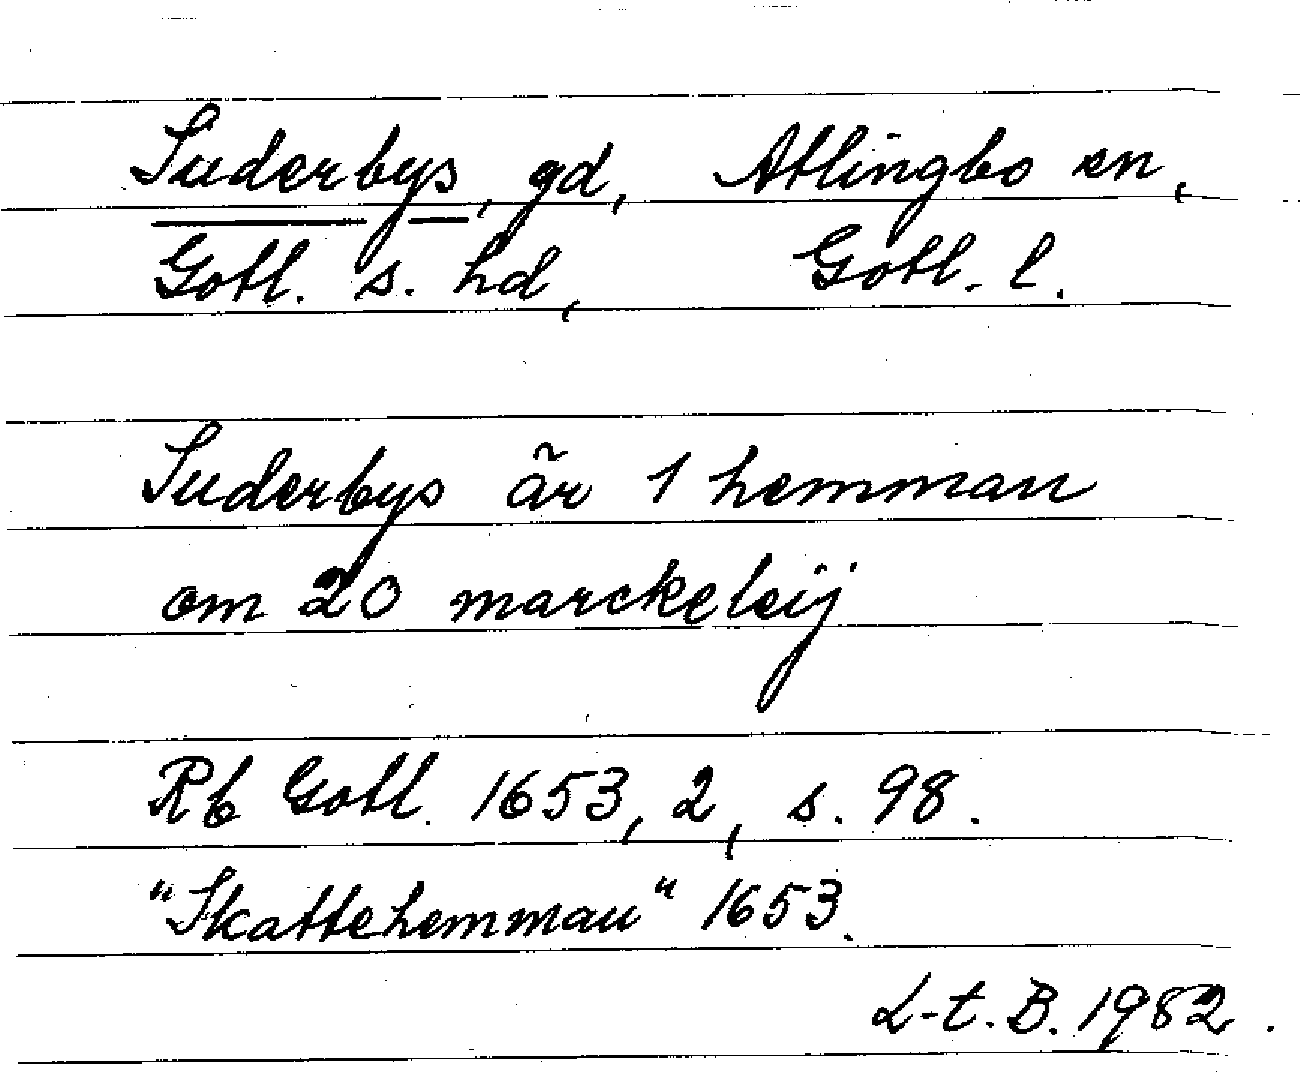 Suderbys, gd, Atlingbo sn,
Gotl. s. hd, Gotl. l.
Suderbys är 1 hemman
om 20 marckeleij
Rb Gotl. 1653, 2, s. 98.
"Skattehemman" 1653.
L-t. B. 1982.